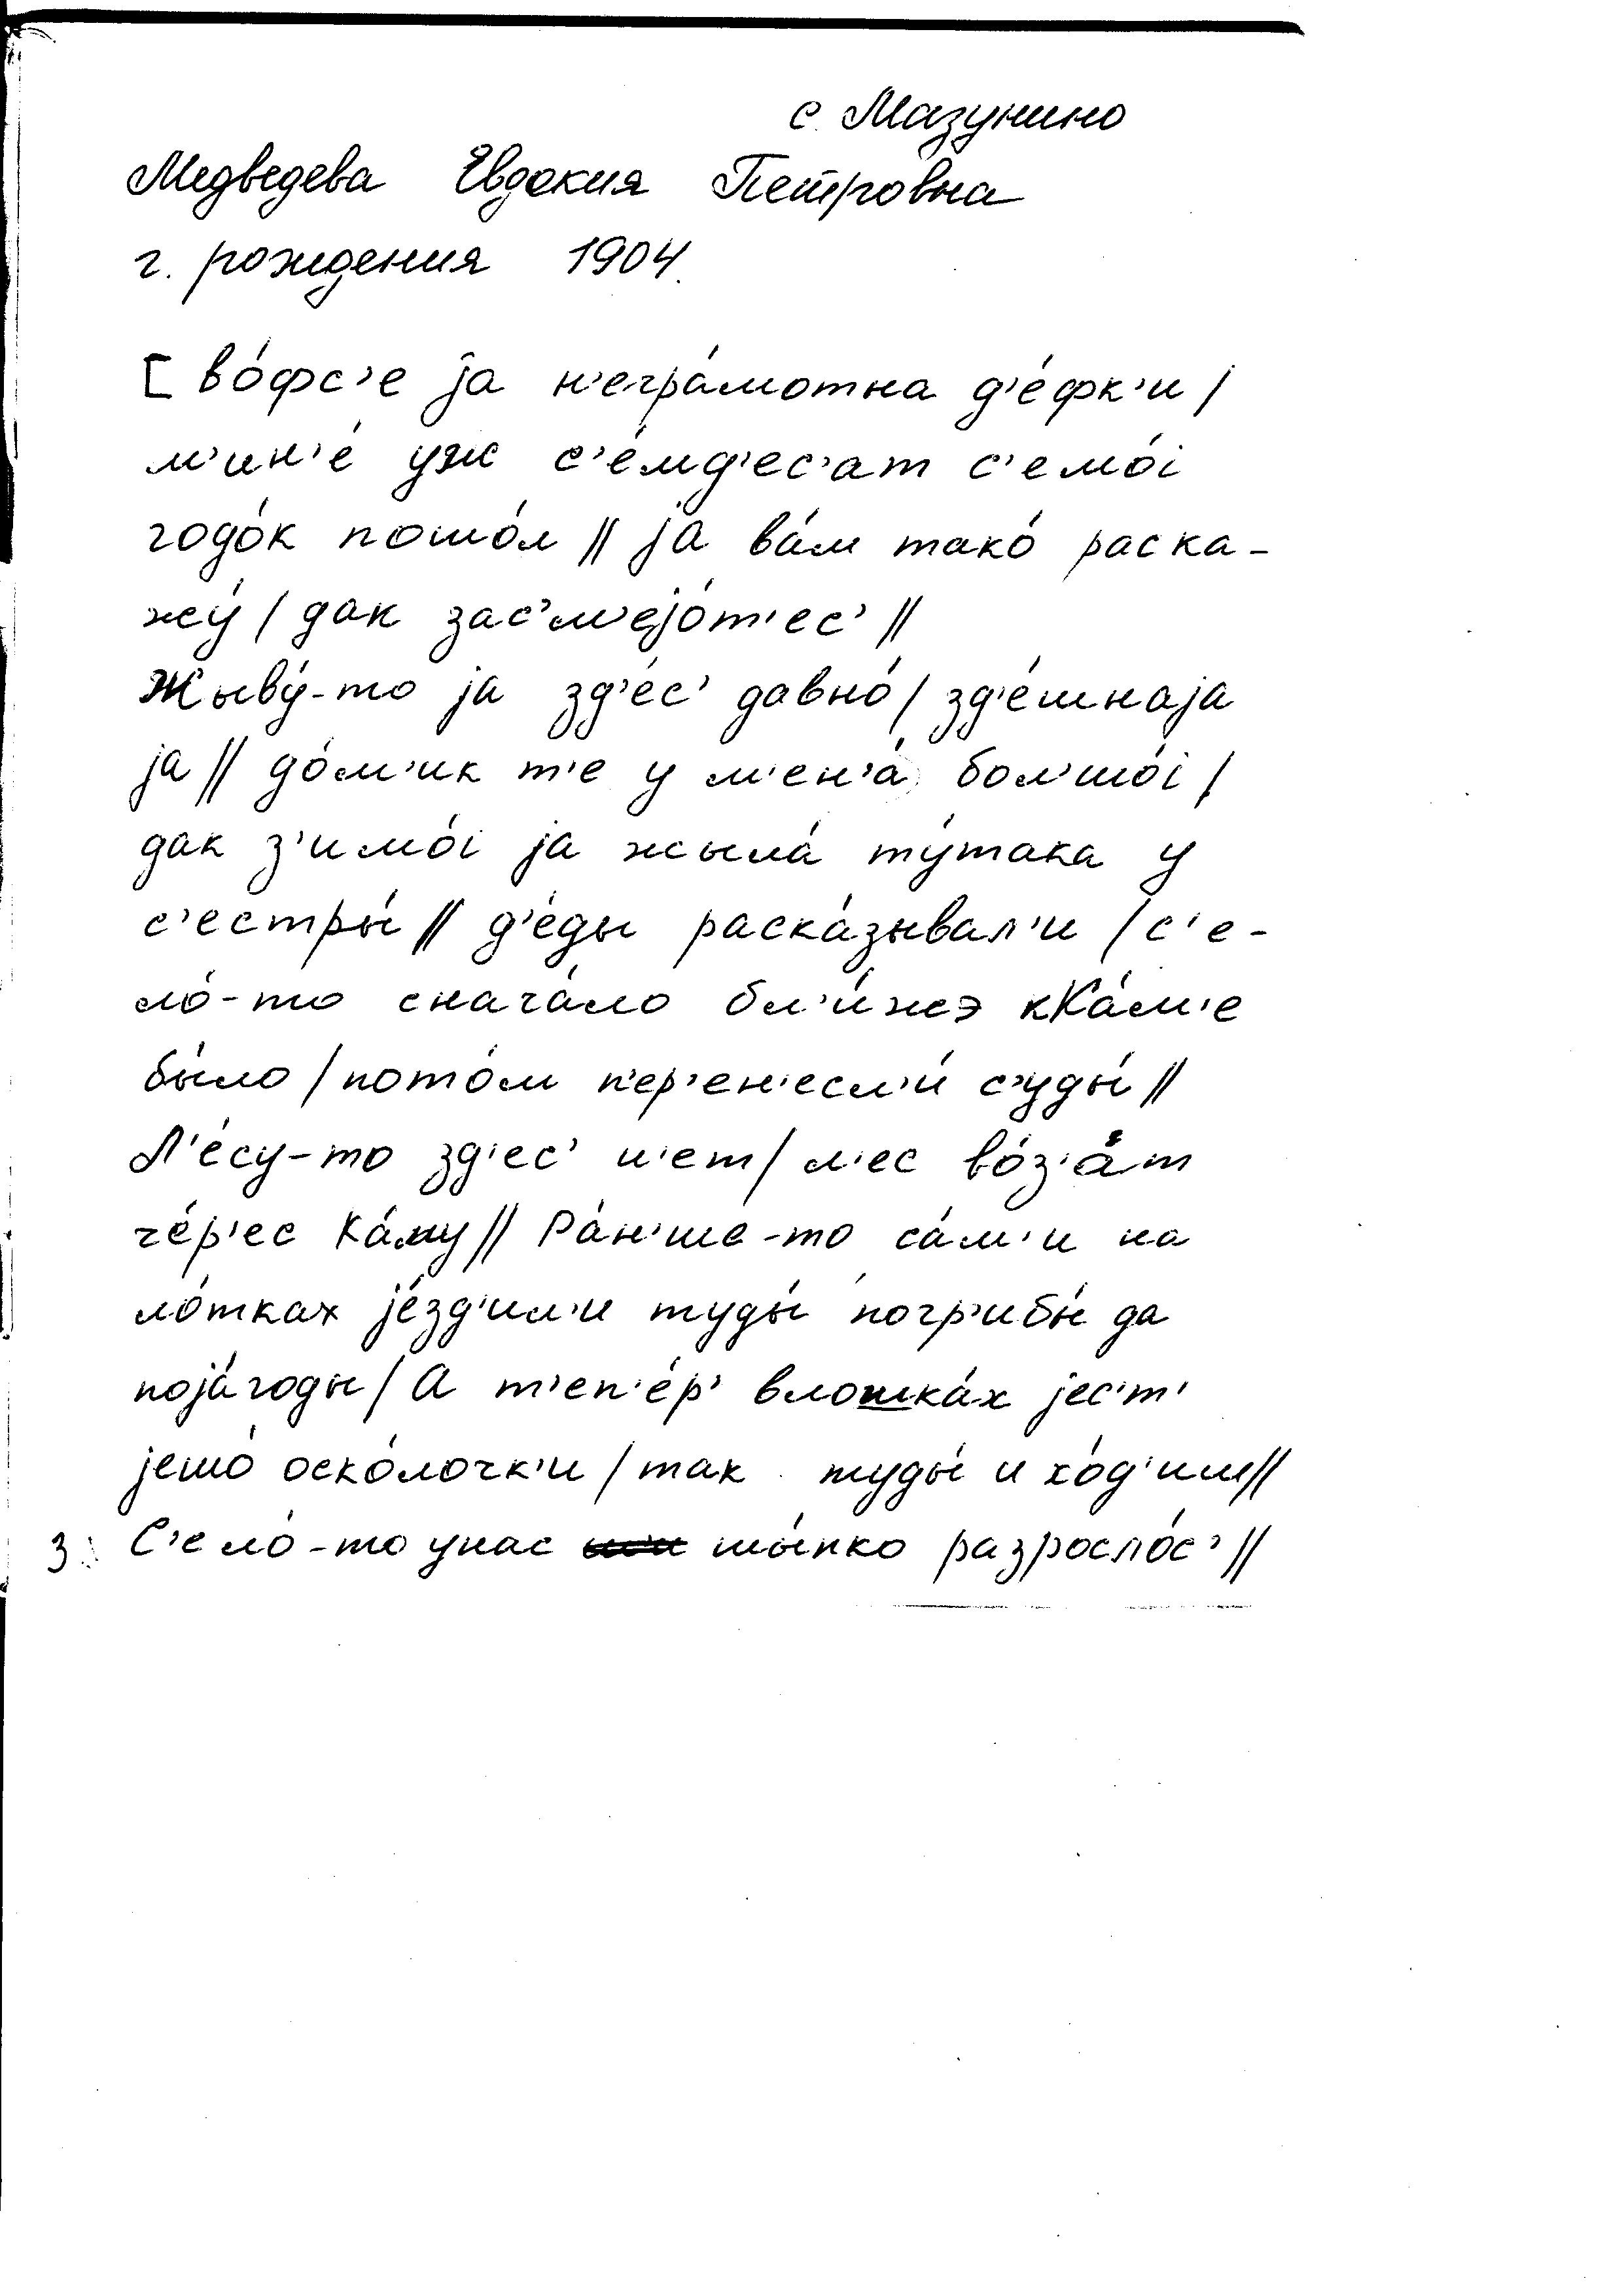 с. Мазунино
Медведева Евдокия Петровна
г. рождения 1904.
[ во́фс'е jа н'егра́мотна д'е́фк'и /
м'ин'е́ уж с'е́мд'ес'ат с'емо́i
годо́к пошо́л // jа ва́м тако́ раска-
жу́ / дак зас'м'ejо́т'ес' //
Жыву́-то jа зд'е́с' давно́ / зд'е́шнаjа
jа // до́м'ик т'е у м'ен'а́ бол'шо́i /
дак з'имо́i jа жыла́ ту́така у
с'естры́ // д'е́ды раска́зывал'и / с'е-
ло́-то снача́ло бл'и́жэ кКа́м'е
бы́ло / пото́м п'ер'ен'есл'и́ с'уды́ //
Л'е́су-то зд'ес' н'ет / л'ес во́з'ат
че́р'ес Ка́му // Ра́н'ше-то са́м'и на
ло́тках jе́зд'ил'и туды́ погр'ибы́ да
поjа́годы / А т'еп'е́р' вложка́х jес'т'
jешо́ оско́лочк'и / так туды́ и хо́д'им //
3. С'ело́-то унас шы́пко разросло́с' //